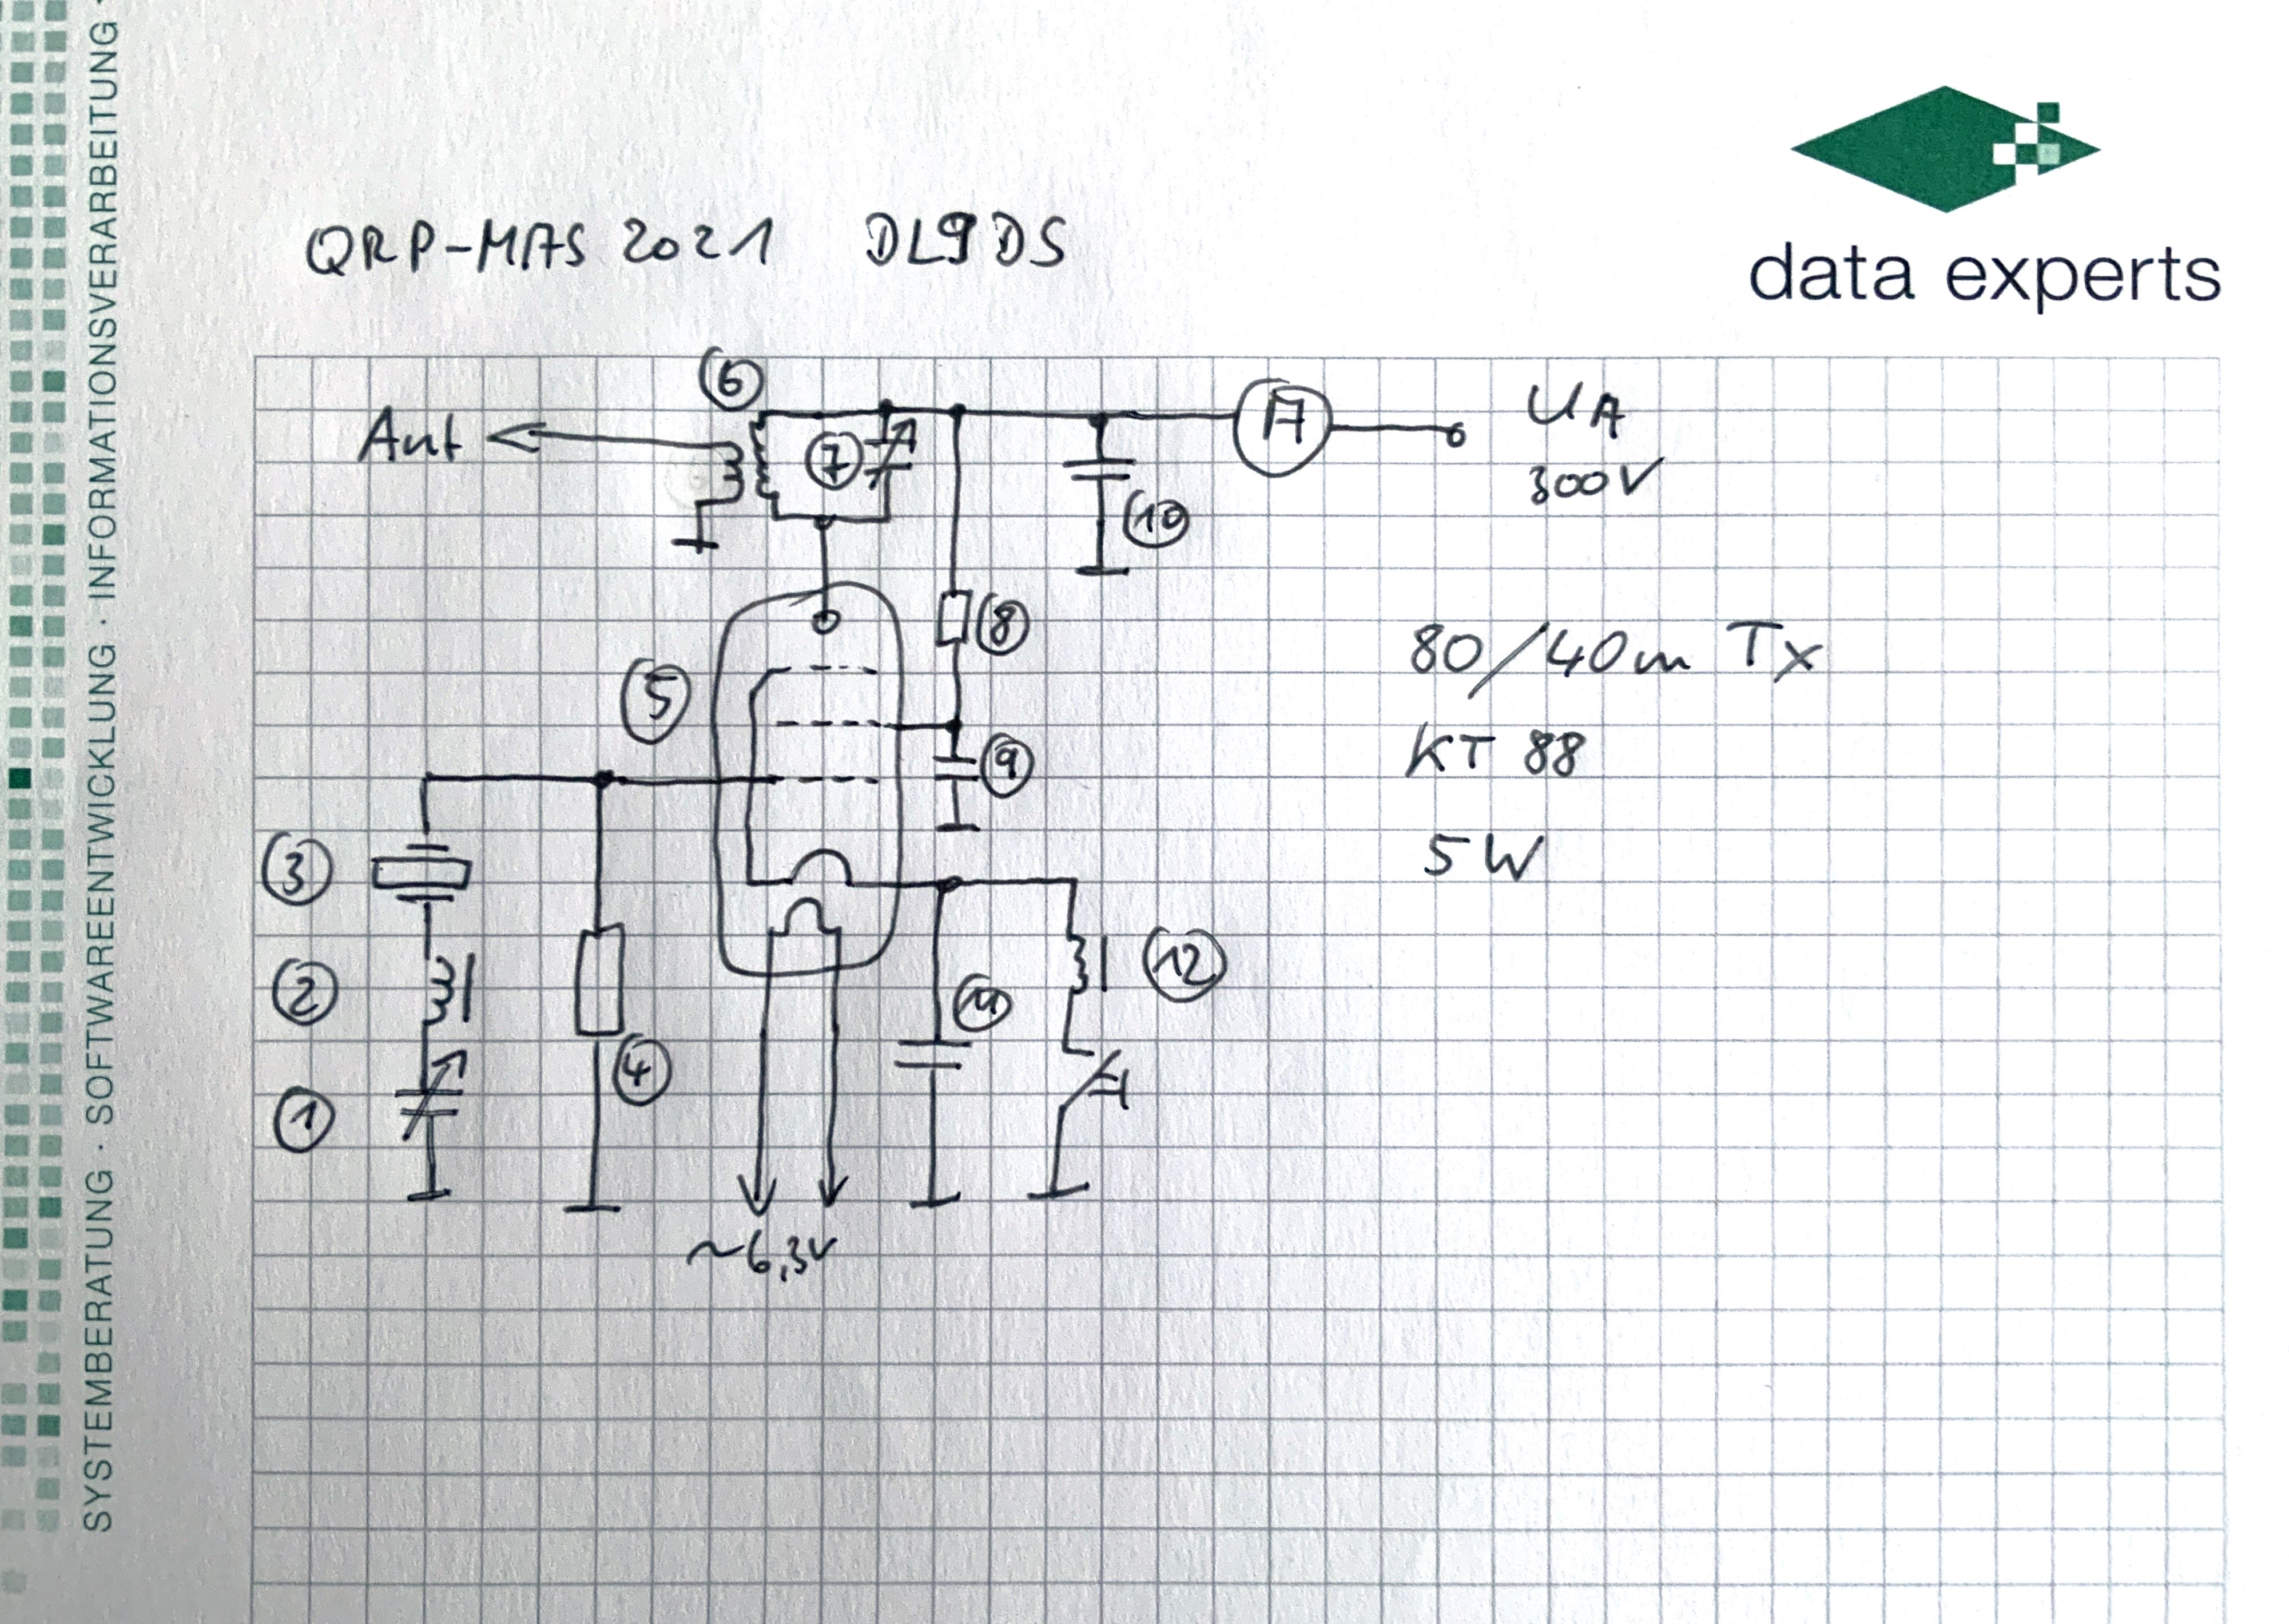 SYSTEMBERATUNG · SOFTWAREENTWICKLUNG · INFORMATIONSVERARBEITUNG ·
data experts
QRP-MAS 2021 DL9DS
Ant
6
7
A
UA
300V
10
8
80/40m Tx
5
KT 88
9
5W
3
2
11
12
4
1
~6,3V